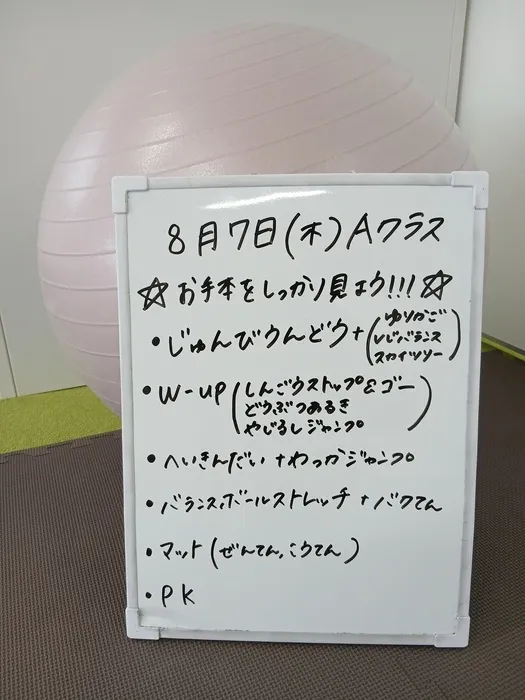 8月7日(木)Aクラス
☆お手本をしっかり見よう!!!☆
・じゅんびうんどう+(ゆりかご
ひじバランス
スカイツリー)
・W-up(しんごうストップ&ゴー
どうぶつあるき
やじるしジャンプ)
・へいきんだい+わっかジャンプ
・バランスボールストレッチ+バクてん
・マット(ぜんてん,こうてん)
・PK